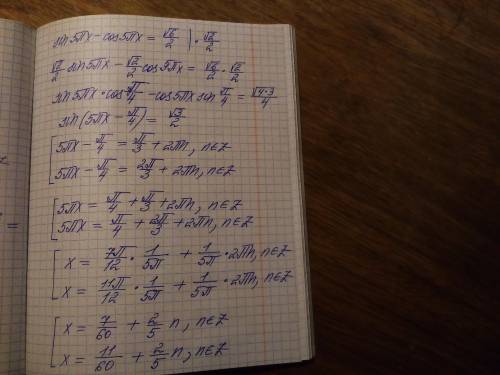 sin 5πx - cos 5πx = √6/2 | · √2/2
√2/2 sin 5πx - √2/2 cos 5πx = √6/2 · √2/2
sin 5πx · cos π/4 - cos 5πx sin π/4 = √(4·3)/4
sin (5πx - π/4) = √3/2
[ 5πx - π/4 = π/3 + 2πn, n∈Z
5πx - π/4 = 2π/3 + 2πn, n∈Z
[ 5πx = π/4 + π/3 + 2πn, n∈Z
5πx = π/4 + 2π/3 + 2πn, n∈Z
[ x = 7π/12 · 1/5π + 1/5π · 2πn, n∈Z
x = 11π/12 · 1/5π + 1/5π · 2πn, n∈Z
[ x = 7/60 + 2/5 n, n∈Z
x = 11/60 + 2/5 n, n∈Z